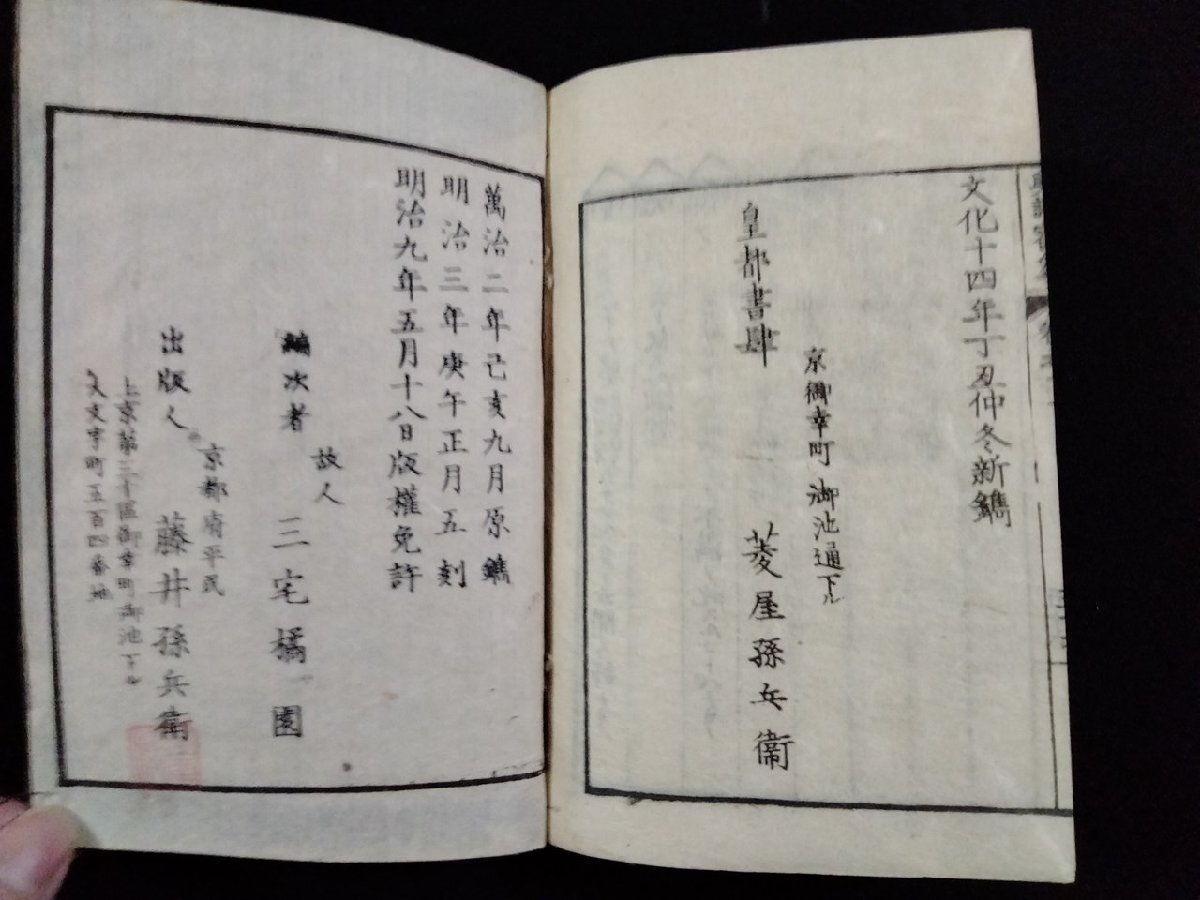 文化十四年丁丑仲冬新鐫
京御幸町御池通下ル
皇都書肆
菱屋孫兵衛
萬治二年己亥九月原鐫
明治三年庚午正月五刻
明治九年五月十八日版權免許
故人
編次者
三宅橘園
京都府平民
出版人
藤井孫兵衛
上京第三十區御幸町御池下ル
大文字町五百四番地